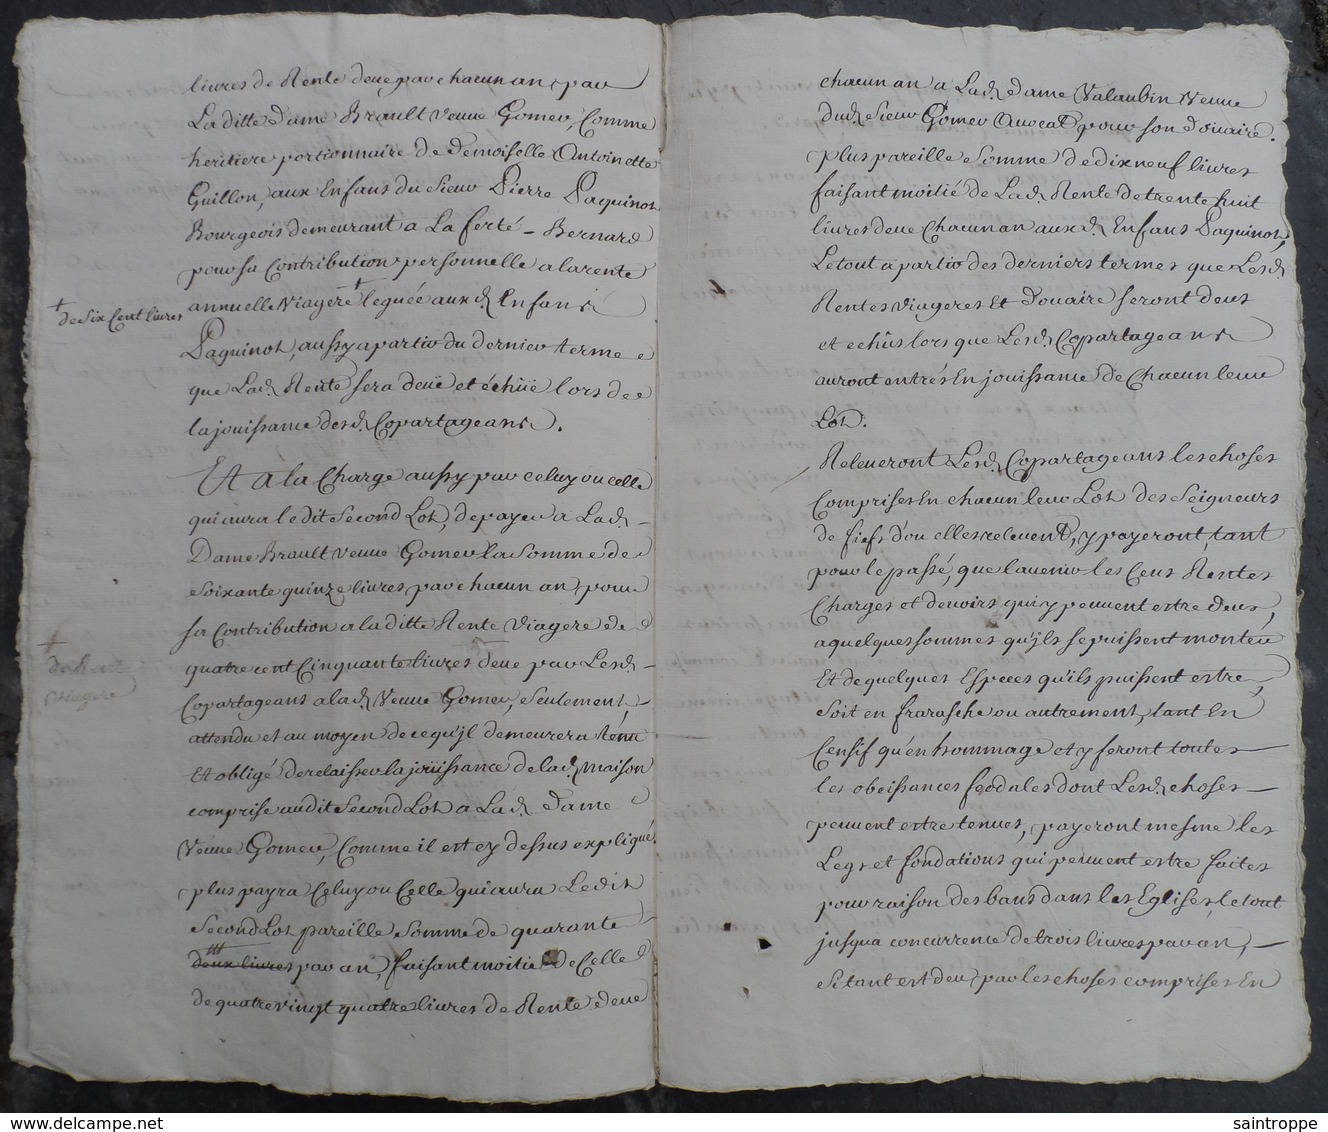 livres de Rente deue par chacun an par
La ditte Dame Brault veuve Gomer, Comme
heritiere portionnaire de Demoiselle Antoinette
Guillon, aux Enfans du Sieur Pierre Paquinot
Bourgeois demeurant a La ferté - Bernard
pour sa Contribution personnelle a la rente
annuelle Viagere + leguée aux d. Enfans
+ de Six Cent livres
Paquinot, aussy a partir du dernier terme
que Lad. Rente sera deüe et échüe lors de
la jouissance desd. Copartageans.
Et a la Charge aussy par celuy ou celle
qui aura le dit Second Lot, de payer a Lad.
Dame Brault veuve Gomer la Somme de
Soixante quinze livres par chacun an pour
sa Contribution a la ditte Rente Viagere de
+ de Rente
Viagere
quatre cent Cinquante livres deue par Lesd.
Copartageans a lad. Veuve Gomer, Seulement,
attendu et au moyen de ce qu'jl demeurera tenu
Et obligé de relaisser la joüissance de lad. maison
comprise audit Second Lot a Lad. Dame
Veuve Gomer, Comme il est cy dessus expliqué.
plus payra Celuy ou Celle qui aura Ledit
Second Lot pareille Somme de quarante
deux livres par an, faisant moitié de Celle
de quatre vingt quatre livres de Rente deue
chacun an a Lad. Dame Valaubin Veuve
dud. Sieur Gomer Avocat pour son Doüaire.
plus pareille Somme de dix neuf livres
faisant moitié de Lad. Rente de trente huit
livres deue Chacun an aux d. Enfans Paquinot,
Le tout a partir des derniers termes que Lesd.
Rentes Viageres Et Doüaire seront deus
et echûs lors que Lesd. Copartageans
auront entrés En jouissance de Chacun leur
Lot.
Releveront Lesd. Copartageans les choses
Comprises En chacun leur Lot des Seigneurs
de fiefs d'ou elles relevent, y payeront, tant
pour le passé, que l'avenir les Cens Rentes
Charges et devoirs qui y peuvent estre deus,
a quelques sommes qu'ils se puissent monter
Et de quelques Especes qu'ils puissent estre,
Soit en frarasche ou autrement, tant En
Censif qu'en hommage et y feront toutes
les obeissances feodales dont Lesd. choses
peuvent estre tenues, payeront mesme les
Legs et fondations qui peuvent estre faites
pour raison des bans dans les Eglises, le tout
jusqua concurrence de trois livres par an,
Si tant est deu par les choses comprises En
saintroppe